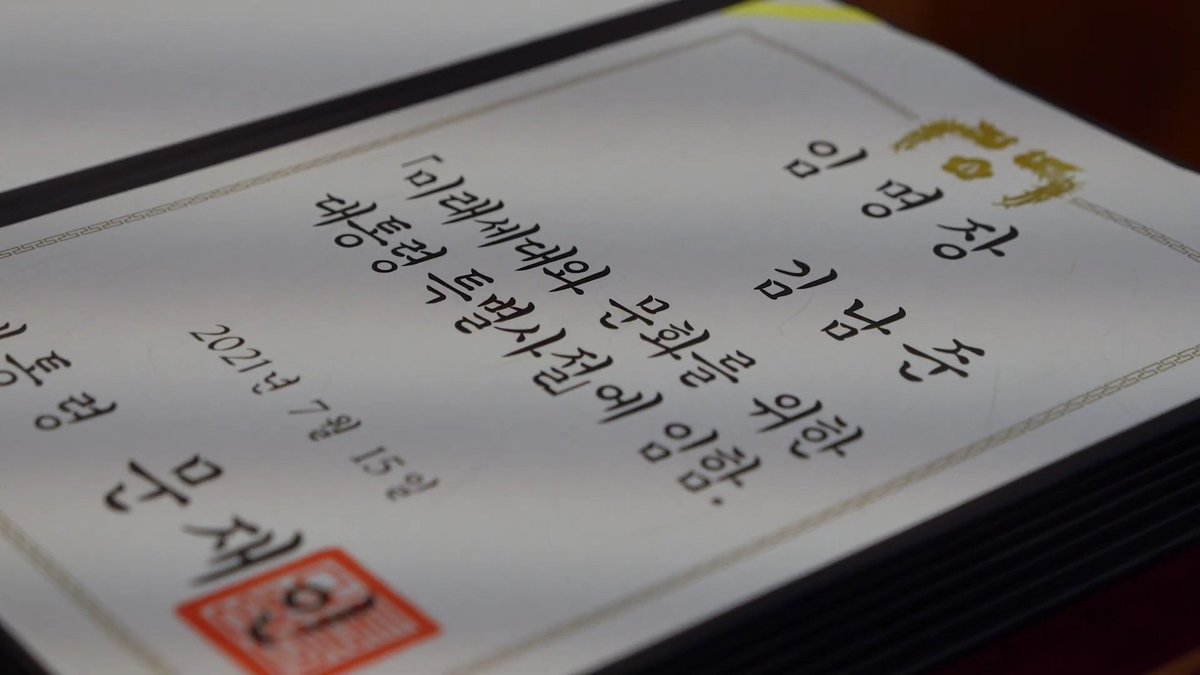 임명장
김남준
「미래세대와 문화를 위한
대통령 특별사절에 임함.
2021년 7월 15일
통령 문재인